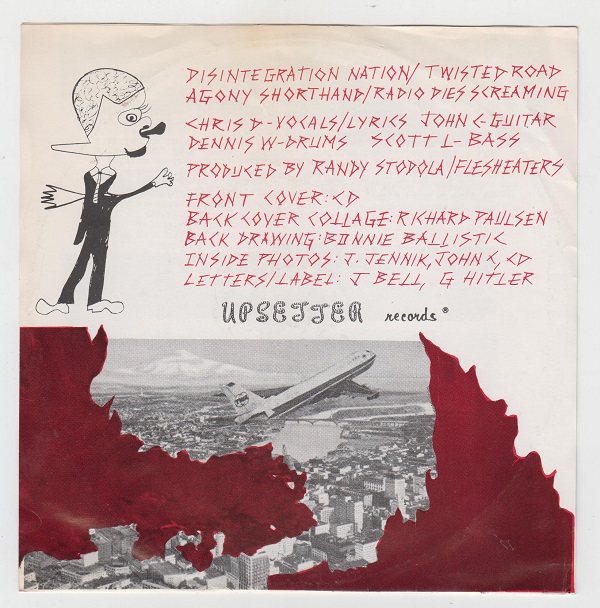 DISINTEGRATION NATION/TWISTED ROAD
AGONY SHORTHAND/RADIO DIES SCREAMING
CHRIS D-VOCALS/LYRICS JOHN C-GUITAR
DENNIS W-DRUMS SCOTT L-BASS
PRODUCED BY RANDY STODOLA/FLESHEATERS
FRONT COVER:CD
BACK COVER COLLAGE:RICHARD PAULSEN
BACK DRAWING:BONNIE BALLISTIC
INSIDE PHOTOS: J. JENNIK, JOHN C, CD
LETTERS/LABEL: J BELL, G HITLER
UPSETTER records®